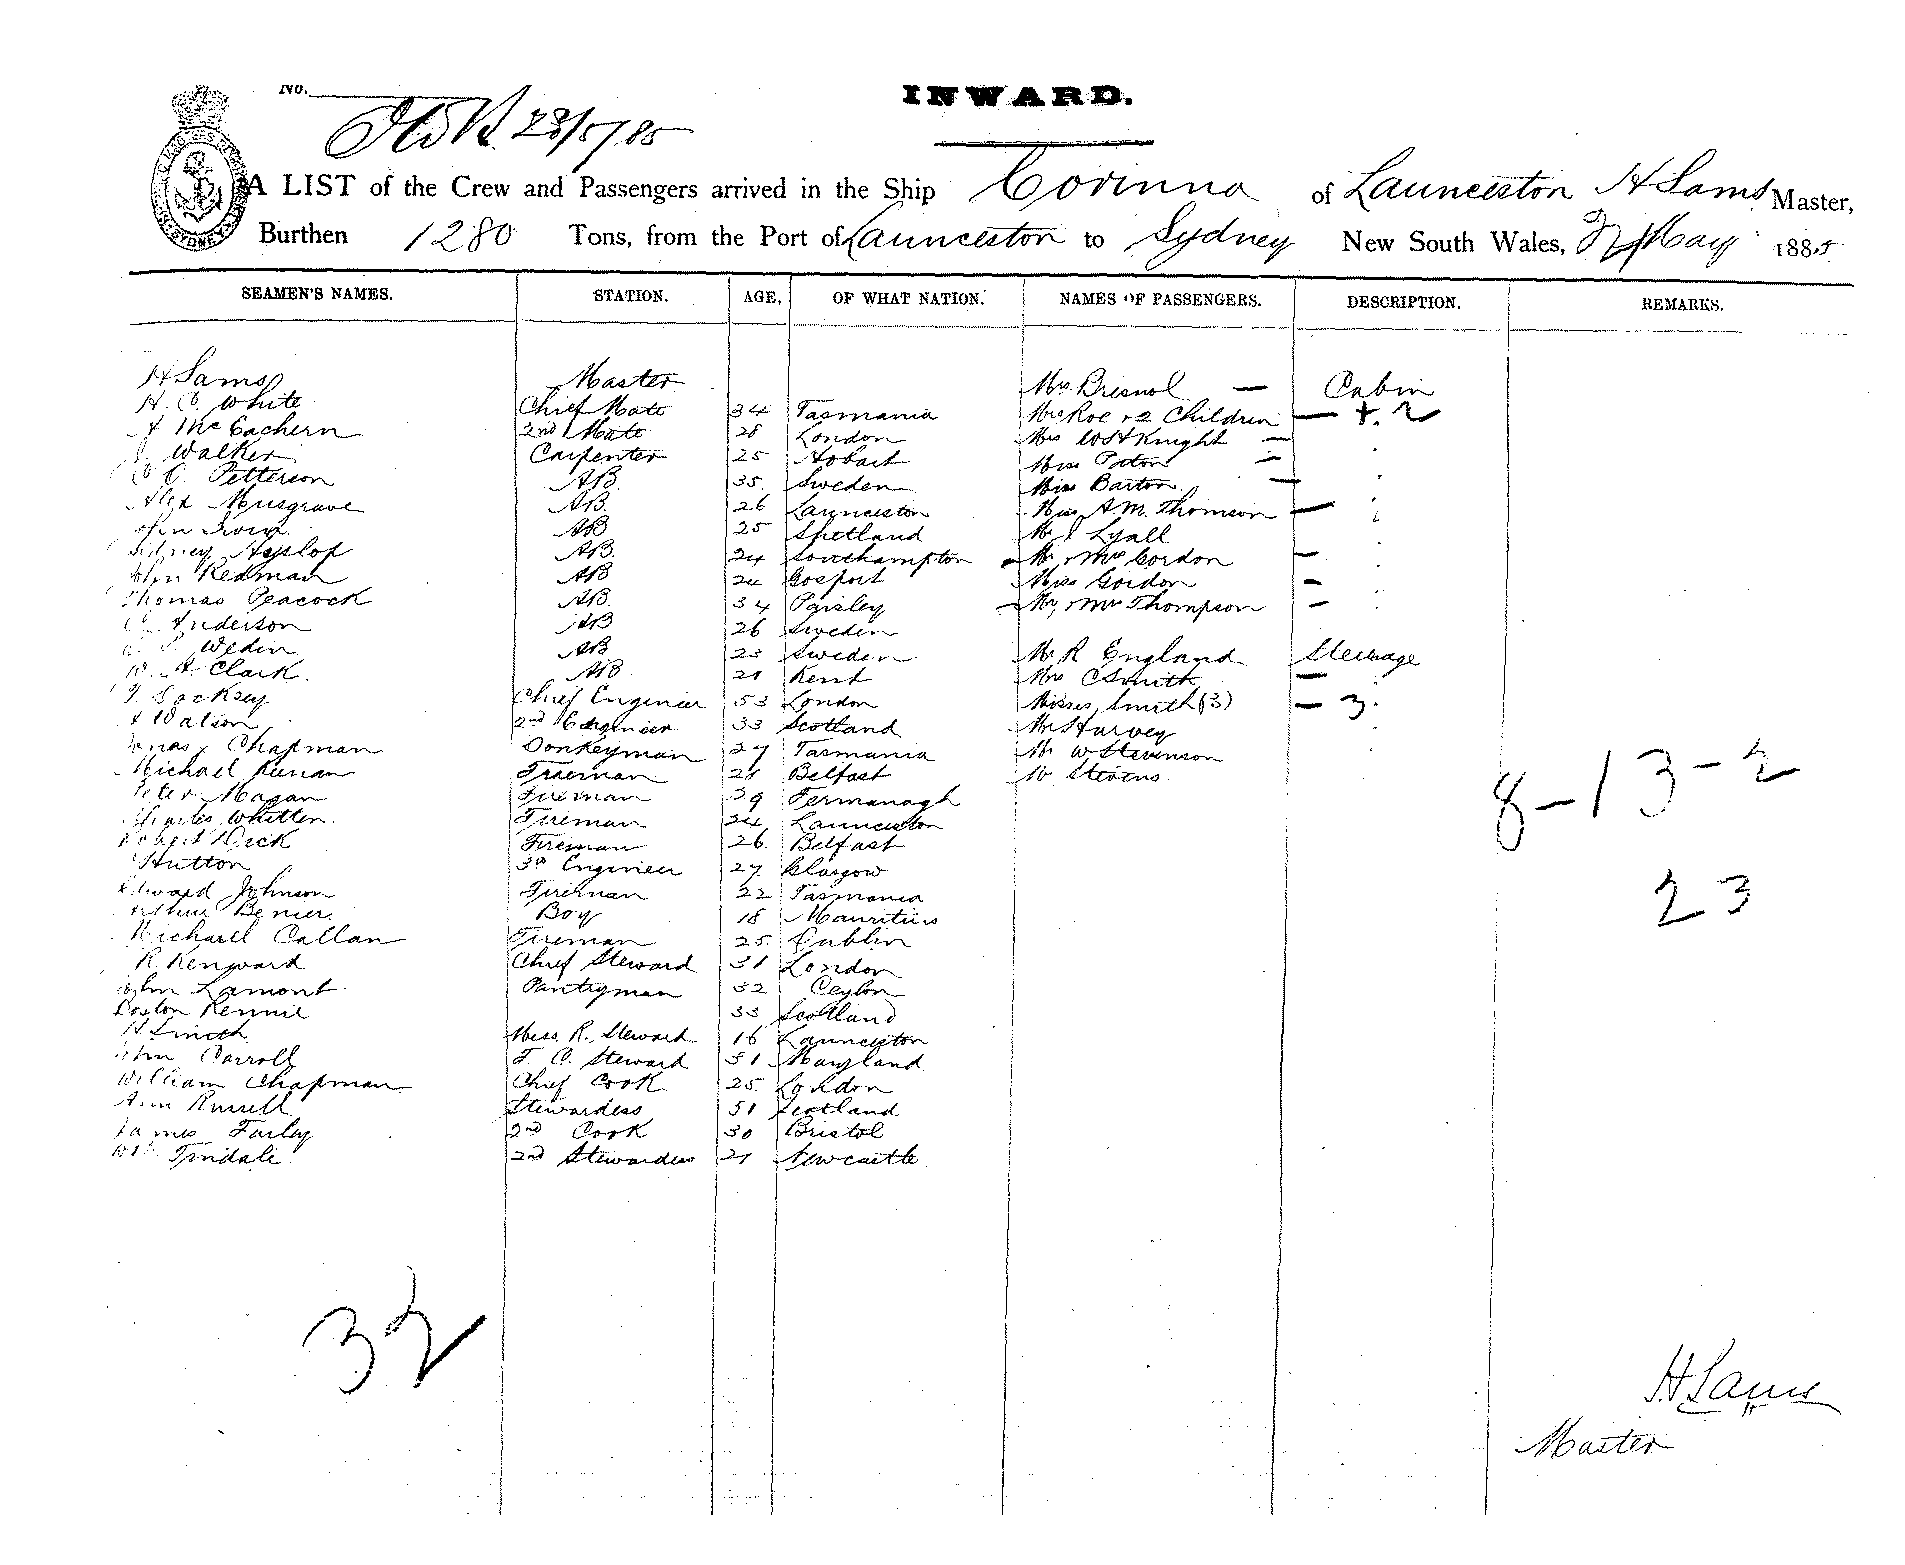 No.
23/5/85
INWARD.
A LIST of the Crew and Passengers arrived in the Ship Corinna of Launceston H Sams Master,
Burthen 1280 Tons, from the Port of Launceston to Sydney New South Wales, May 1885
SEAMEN'S NAMES. STATION. AGE, OF WHAT NATION. NAMES OF PASSENGERS. DESCRIPTION. REMARKS.
H Sams Master Mrs Bresnol — Cabin
H. C. White Chief Mate 34 Tasmania Mrs Roe + 2 Children — + 2
McEachern 2nd Mate 28 London Mrs W H Knight —
Walker Carpenter 25 Hobart Miss Paton —
Petterson AB 35 Sweden Miss Barton —
Alex Musgrave AB 26 Launceston Miss A. M. Thomson —
John Irving AB 25 Shetland Mr J Lyall
Sidney Hyslop AB 24 Southampton Mr & Mrs Gordon —
John Redman AB 24 Gosport Miss Gordon —
Thomas Peacock AB 34 Paisley Mr & Mrs Thompson —
Anderson AB 26 Sweden
Wedin AB 23 Sweden Mr R England Steerage
W. A. Clark AB 21 Kent Mrs C Smith —
Chief Engineer 53 London Misses Smith (3) — 3
Watson 2nd Engineer 33 Scotland Mr Harvey
Chapman Donkeyman 27 Tasmania Mr W Stevenson
Michael Keenan Fireman 28 Belfast Mr Stevens
Peter Magan Fireman 39 Fermanagh
Charles Whitten Fireman 24 Launceston
Robert Dick Fireman 26 Belfast
Hutton 3rd Engineer 27 Glasgow
Edward Johnson Fireman 22 Tasmania
Arthur Benier Boy 18 Mauritius
Michael Callan Fireman 25 Dublin
R. Kenward Chief Steward 31 London
John Lamont Pantryman 32 Ceylon
Rennie 33 Scotland
H Smith Mess R. Steward 16 Launceston
John Carroll F. C. Steward 31 Maryland
William Chapman Chief Cook 25 London
Ann Russell Stewardess 51 Scotland
James Farley 2nd Cook 30 Bristol
Tindale 2nd Stewardess 21 Newcastle
8-13-2
23
32
H Sams
Master